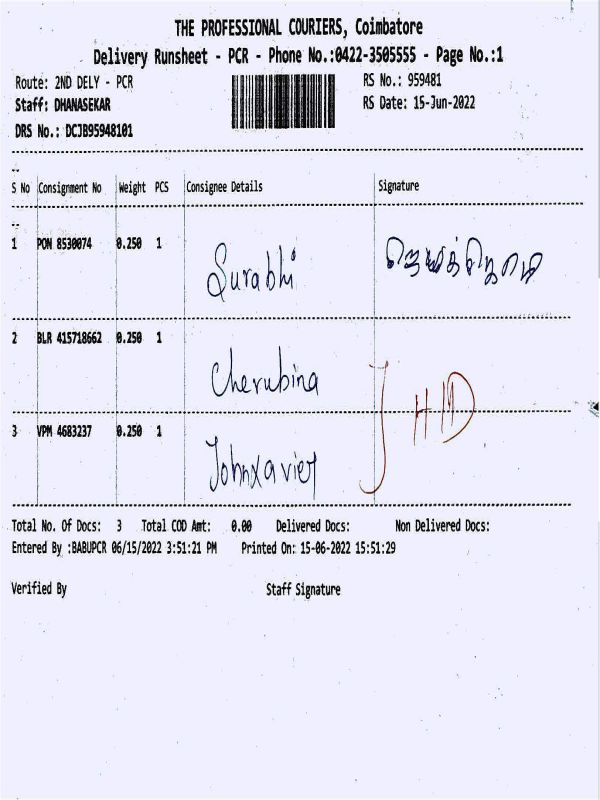 THE PROFESSIONAL COURIERS, Coimbatore
Delivery Runsheet - PCR - Phone No.:0422-3505555 - Page No.:1
Route: 2ND DELY - PCR RS No.: 959481
Staff: DHANASEKAR RS Date: 15-Jun-2022
DRS No.: DCJB95948101
S No Consignment No Weight PCS Consignee Details Signature
1 PON 8530074 0.250 1 Surabhi
2 BLR 415718662 0.250 1 Cherubina
3 VPM 4683237 0.250 1 Johnxavier
HD
Total No. Of Docs: 3 Total COD Amt: 0.00 Delivered Docs: Non Delivered Docs:
Entered By :BABUPCR 06/15/2022 3:51:21 PM Printed On: 15-06-2022 15:51:29
Verified By Staff Signature